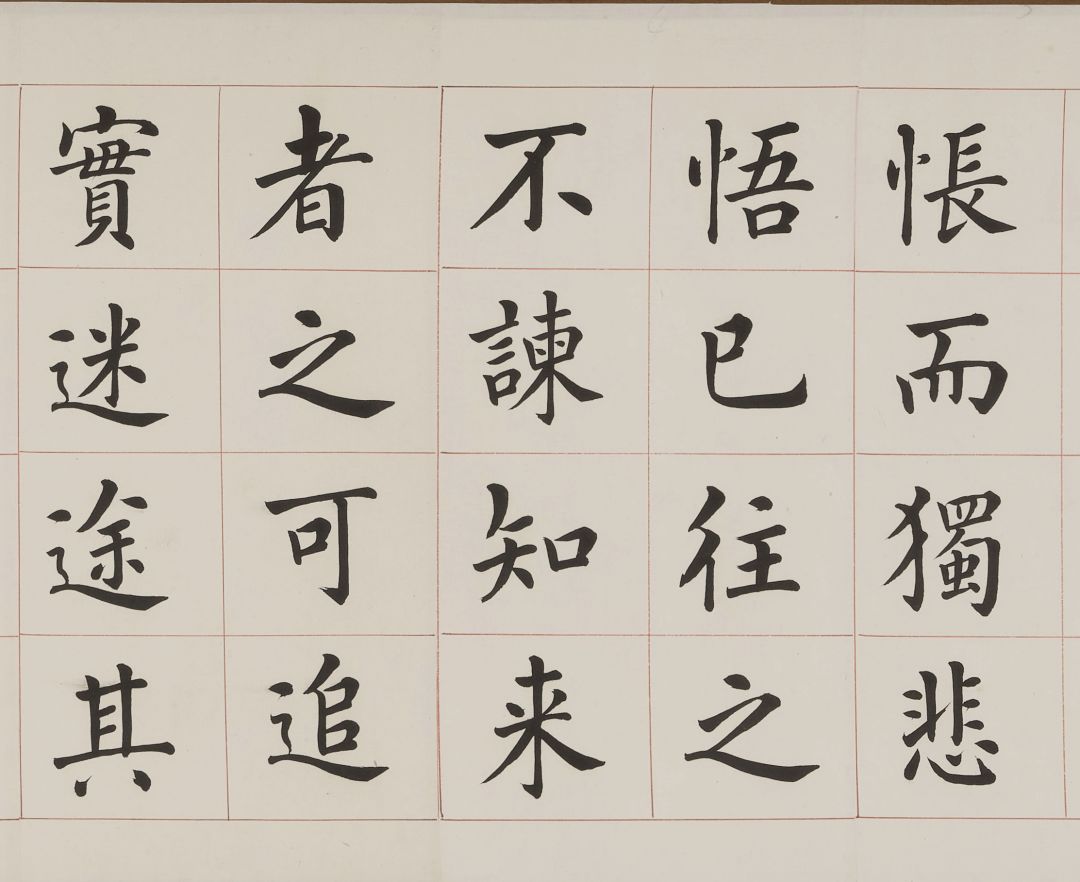 悵而獨悲
悟已往之
不諫知来
者之可追
實迷途其